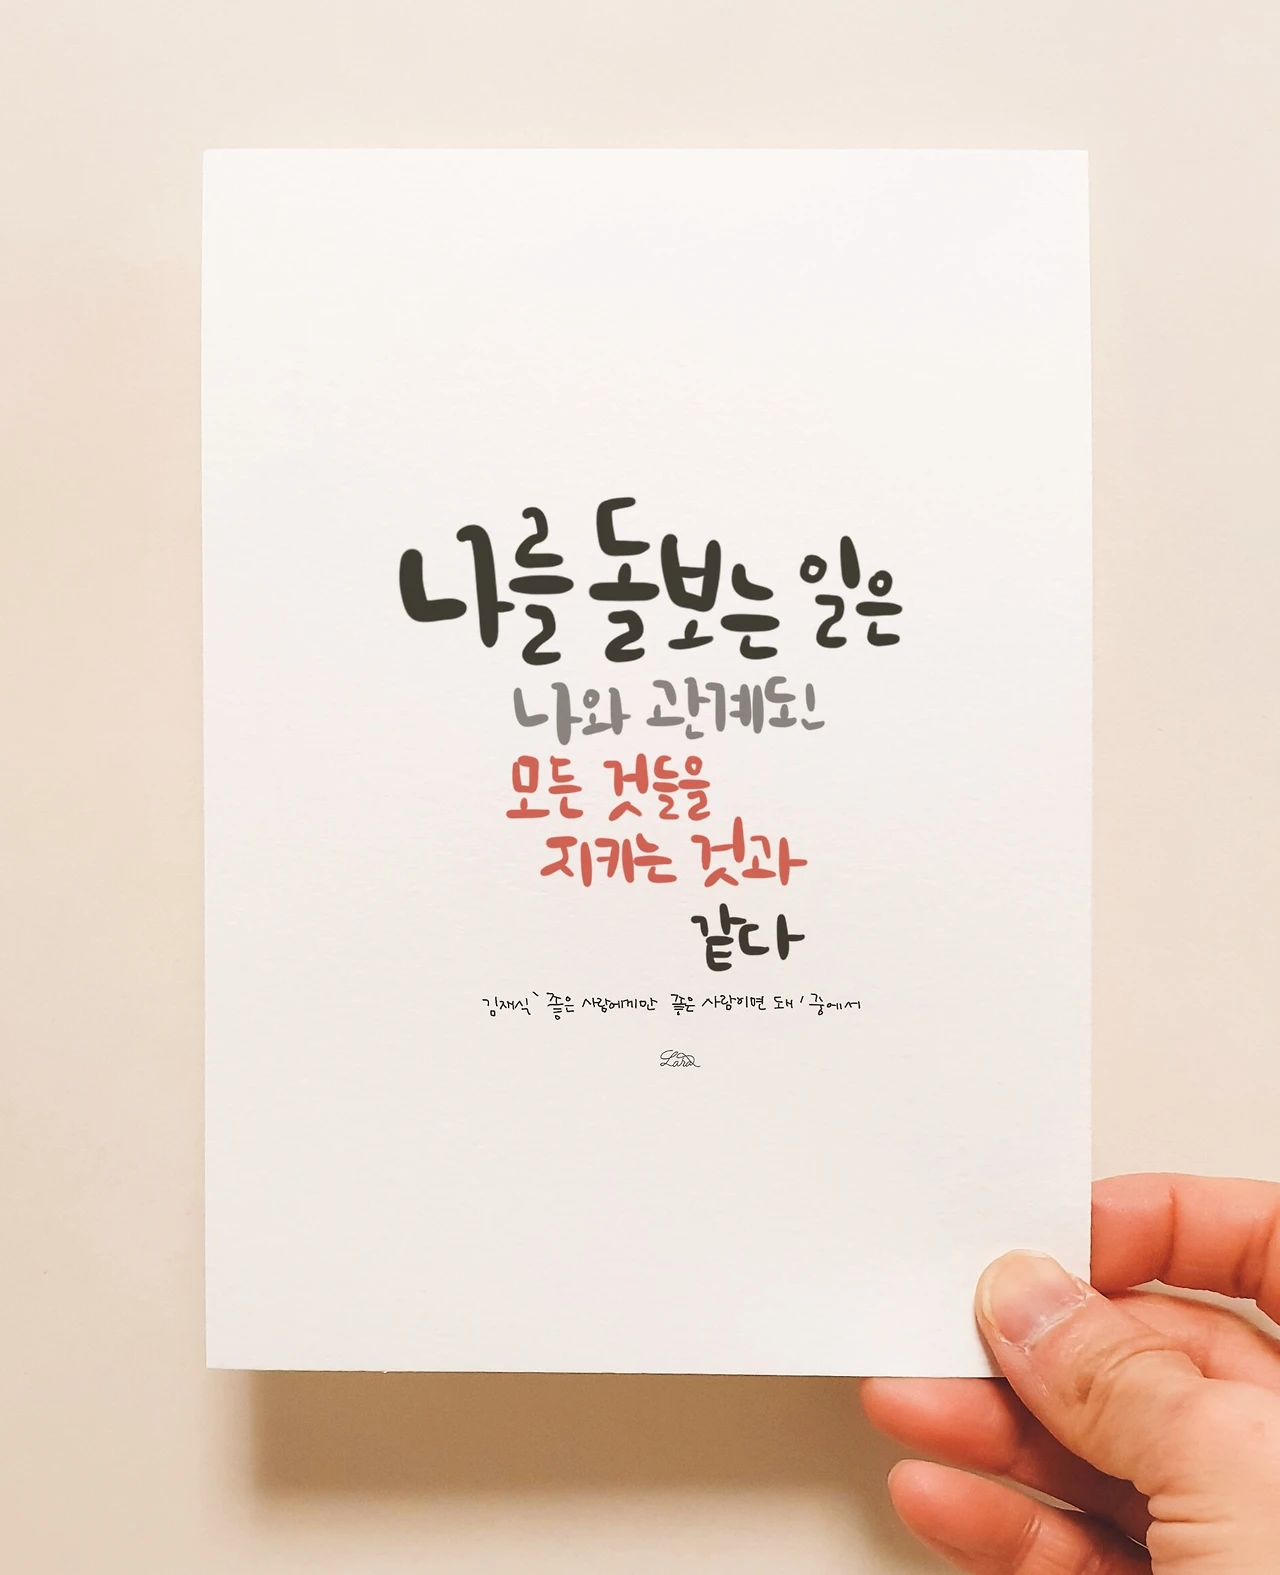 나를 돌보는 일은
나와 관계된
모든 것들을
지키는 것과
같다
김재식 '좋은 사람에게만 좋은 사람이면 돼' 중에서
Lara